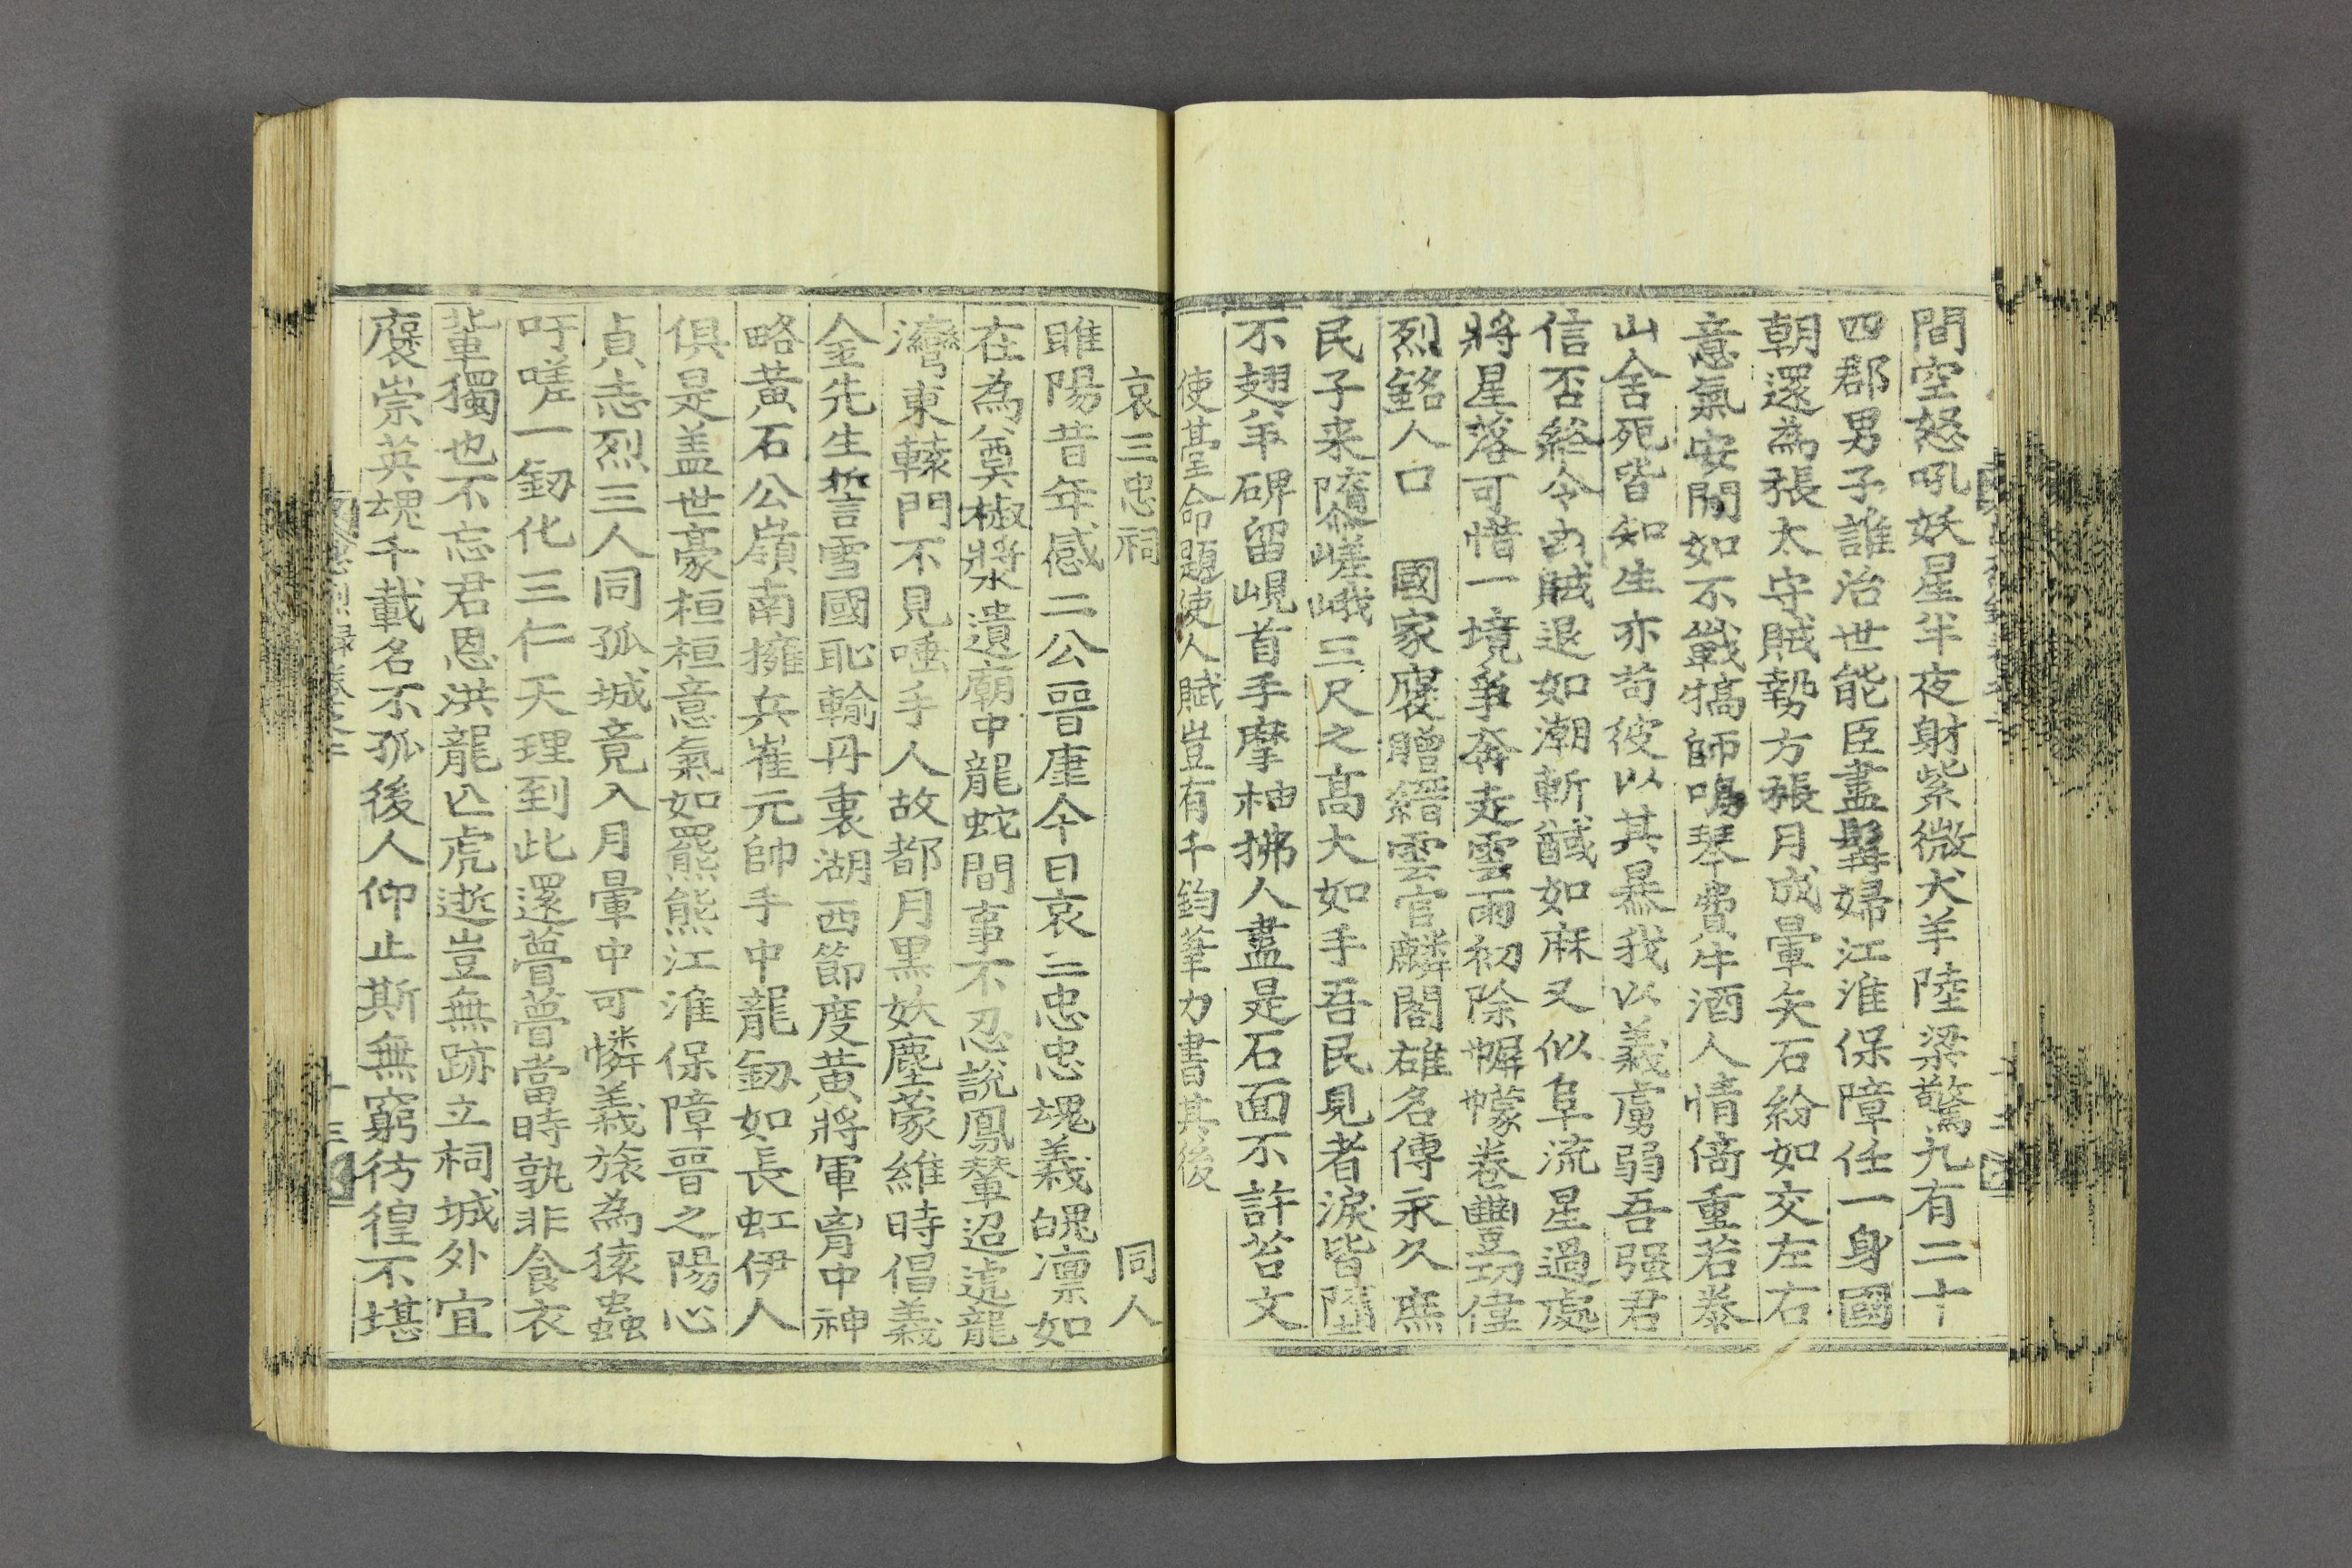 間空怒吼妖星半夜射紫微犬羊陸梁驚九有二十
四郡男子誰治世能臣盡髯婦江淮保障任一身國
朝還為張太守賊勢方張月成暈矢石紛如交左右
意氣安閒如不戰犒師鳴琴費牛酒人情倚重若泰
山舍死皆知生亦苟彼以其暴我以義虜弱吾强君
信否終令凶賊退如潮斬馘如麻又似阜流星過處
將星落可惜一境爭奔走雲雨初除幈幪卷豐功偉
烈銘人口 國家褒贈縉雲官麟閣雄名傳永久無
民子来隳嵯峨三尺之髙大如手吾民見者淚皆墮
不翅羊碑留峴首手摩袖拂人盡是石面不許苔文
使臺命題使人賦豈有千鈞筆力書其後
哀三忠祠 同人
睢陽昔年感二公晋康今日哀三忠忠魂義魄凛如
在為奠椒漿遺廟中龍蛇間事不忍説鳳輦迢遞龍
灣東轅門不見唾手人故都月黑妖塵蒙維時倡義
金先生誓雪國恥輸丹衷湖西節度黃將軍胷中神
略黃石公嶺南擁兵崔元帥手中龍釼如長虹伊人
俱是盖世豪桓桓意氣如羆熊江淮保障晋之陽心
貞志烈三人同孤城竟入月暈中可憐義旅為猿蟲
吁嗟一釼化三仁天理到此還瞢瞢當時孰非食衣
輩獨也不忘君恩洪龍亡虎逝豈無跡立祠城外宜
褒崇英魂千載名不孤後人仰止斯無窮彷徨不堪
忠烈録卷之二 十三